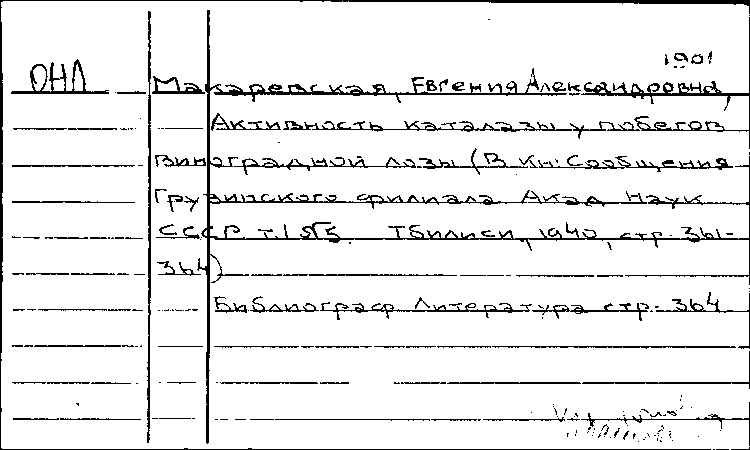 1901
ОНЛ Макаревская, Евгения Александровна,
Активность каталазы у побегов
виноградной лозы (В кн: Сообщения
Грузинского филиала Акад Наук
СССР т.I №5 Тбилиси, 1940, стр. 361-
364)
Библиограф Литература стр. 364